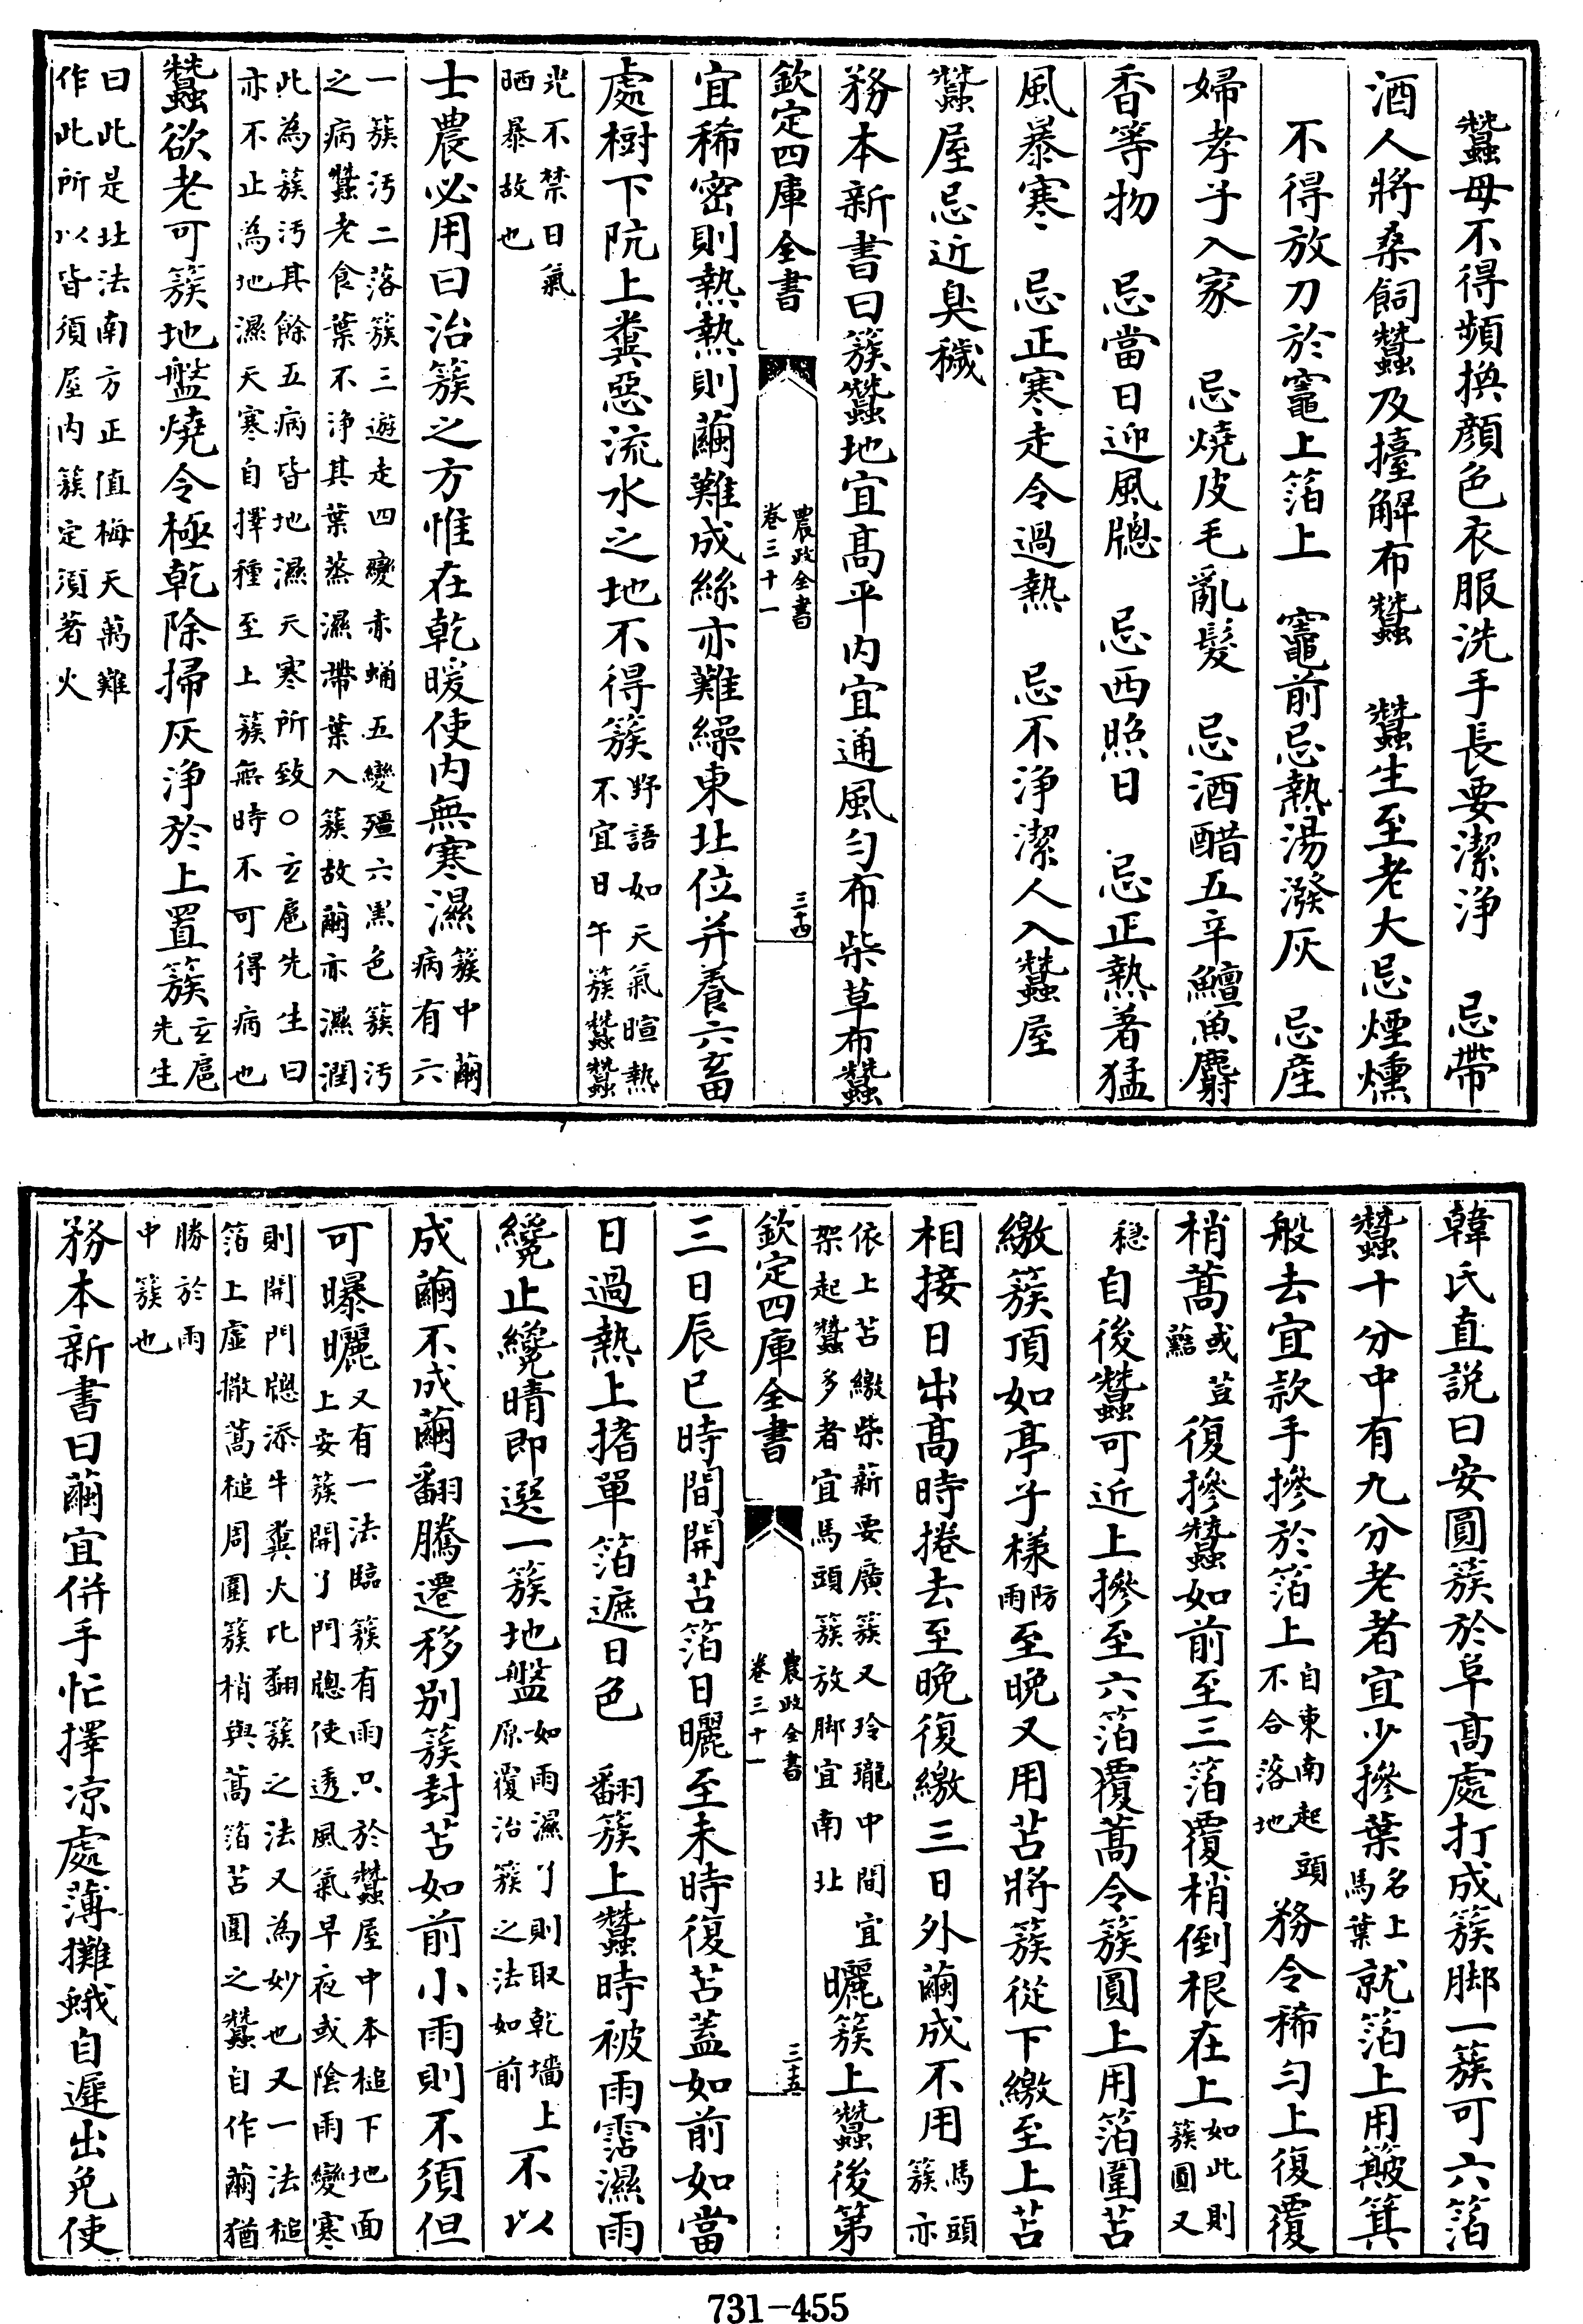 蠶母不得頻換顔色衣服洗手長要潔淨　忌帶
酒人將桑飼蠶及擡解布蠶　蠶生至老大忌煙燻
不得放刀於竈上箔上　竈前忌熱湯潑灰　忌産
婦孝子入家　忌燒皮毛亂髮　忌酒醋五辛鱣魚麝
香等物　忌當日迎風牕　忌西照日　忌正熱著猛
風暴寒　忌正寒走令過熱　忌不淨潔人入蠶屋
蠶屋忌近臭穢
務本新書曰簇蠶地宜髙平内宜通風匀布柴草布蠶
欽定四庫全書
農政全書
卷三十一
三十四
宜稀密則熱熱則繭難成絲亦難繰東北位并養六畜
處樹下阬上糞惡流水之地不得簇野語如天氣暄熱
不宜日午簇蠶蠶
光不禁日氣
晒暴故也
士農必用曰治簇之方惟在乾暖使内無寒濕簇中繭
病有六
一簇汚二落簇三遊走四變赤蛹五變殭六黒色簇汚
之病蠶老食葉不淨其葉蒸濕帶葉入簇故繭亦濕潤
此為簇汚其餘五病皆地濕天寒所致○玄扈先生曰
亦不止為地濕天寒自擇種至上簇無時不可得病也
蠶欲老可簇地盤燒令極乾除掃灰淨於上置簇玄扈
先生
曰此是北法南方正值梅天萬難
作此所以皆須屋内簇定須著火
韓氏直説曰安圓簇於阜髙處打成簇脚一簇可六箔
蠶十分中有九分老者宜少摻葉名上
馬葉就箔上用簸箕
般去宜款手摻於箔上自東南起頭
不合落地務令稀匀上復覆
梢蒿或荳
藍復摻蠶如前至三箔覆梢倒根在上如此則
簇圓又
穏自後蠶可近上摻至六箔覆蒿令簇圓上用箔圍苫
繳簇頂如亭子様防
雨至晚又用苫將簇從下繳至上苫
相接日出髙時捲去至晚復繳三日外繭成不用馬頭
簇亦
依上苫繳柴薪要廣簇又玲瓏中間宜
架起蠶多者宜馬頭簇放脚宜南北曬簇上蠶後第
欽定四庫全書
農政全書
卷三十一
三十五
三日辰巳時間開苫箔日曬至未時復苫葢如前如當
日過熱上揩單箔遮日色　翻簇上蠶時被雨霑濕雨
纔止纔晴即選一簇地盤如雨濕了則取乾墻上
原覆治簇之法如前不以
成繭不成繭翻騰遷移别簇封苫如前小雨則不須但
可曝曬又有一法臨簇有雨只於蠶屋中本槌下地面
上安簇開了門牕使透風氣早夜或陰雨變寒
則開門牕添牛糞火比翻簇之法又為妙也又一法槌
箔上虚撒蒿槌周圍簇梢與蒿箔苫圍之蠶自作繭猶
勝於雨
中簇也
務本新書曰繭宜併手忙擇凉處薄攤蛾自遲出免使
731-455